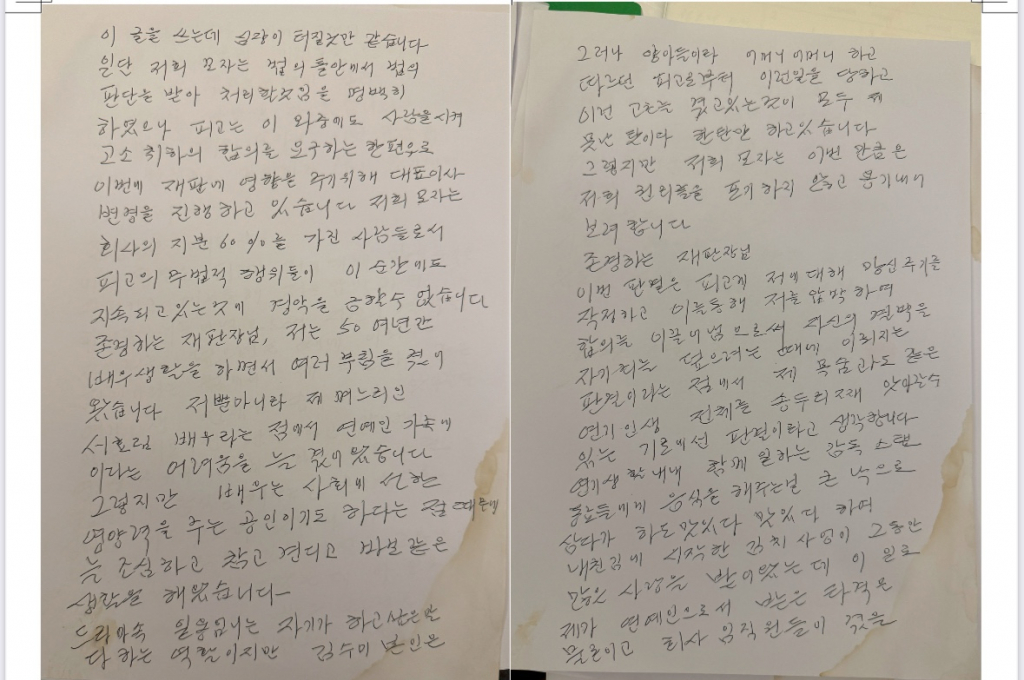 이 글을 쓰는데 심장이 터질것만 같습니다
일단 저희 모자는 법의 틀안에서 법의
판단는 받아 처리할것임을 명백히
하였으나 피고는 이 와중에도 사람을시켜
고소 취하의 합의를 요구하는 한편으로
이번에 재판에 영향은 주기위해 대표이사
변경을 진행하고 있습니다 저희 모자는
회사의 지분 60%를 가진 사람들로서
피고의 무법적 행위들이 이 순간에도
지속되고있는것에 경악을 금할수 없습니다
존경하는 재판장님, 저는 50여년간
배우생활을 하면서 여러 부침을 겪어
왔습니다 저뿐아니라 제 며느리인
서효림 배우라는 점에서 연예인 가족에
이라는 어려움을 늘 겪어왔습니다
그렇지만 배우는 사회에 선한
영향력을 주는 공인이기도 하다는 점 때문에
늘 조심하고 참고 견디고 바보같은
생활을 해왔습니다
드라마속 일용엄니는 자기가 하고싶은말
다 하는 역할이지만 김수미 본인은
그러나 양아들이라 어머니 어머니 하고
따르던 피고로부터 이런일을 당하고
이런 고초는 겪고있는것이 모두 제
못난 탓이라 한탄만 하고있습니다
그렇지만 저희 모자는 이번 만큼은
저희 권리들을 포기하지 않고 용기내어
보려 합니다
존경하는 재판장님
이번 판결은 피고게 저에 대해 망신주기를
작정하고 이를통해 저를 압박하여
합의를 이끌어냄으로써 자신의 경박을
자기지는 덮으려는 때에 이뤄지는
판결이라는 점에서 제 목숨과도 같은
연기인생 전체를 송두리째 앗아갈수
있는 기로에선 판결이라고 생각합니다
연기생활내내 함께 일하는 감독 스탭
동료들에게 음식을 해주는걸 큰 낙으로
삼다가 하도맛있다 맛있다 하여
내친김에 시작한 김치사업이 그동안
많은 사랑을 받아왔는데 이 일로
제가 연예인으로서 받은 타격은
물론이고 회사 임직원들이 겪을